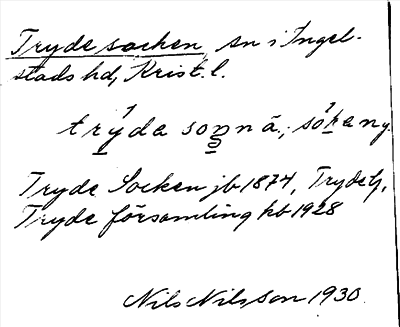 Tryde socken, sn i Ingel-
stads hd, Krist. l.
trýda sonnä, sókany
Tryde Socken jb 1874, Tryde G,
Tryde församling kb 1928
Nils Nilsson 1930